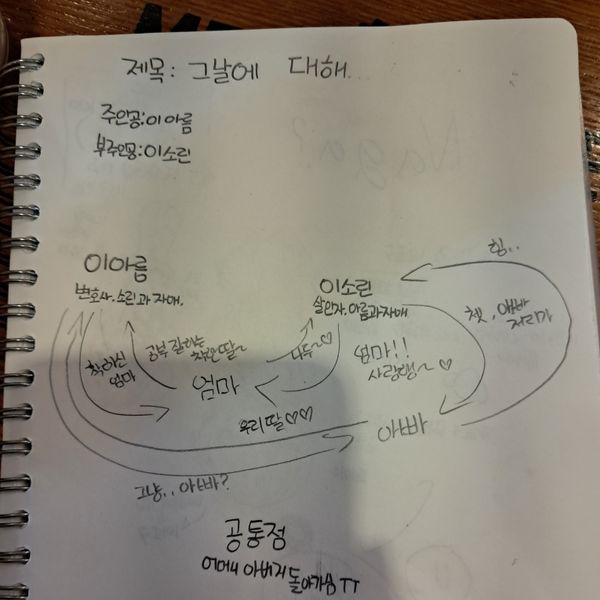 제목: 그날에 대해
주인공:이아름
부주인공:이소린
이아름
변호사. 소린과 자매.
이소린
살인자. 아름과 자매
힝..
쳇, 아빠
저리가
착하신
엄마
공부 잘하는
착한 딸~
나두~♡
엄마!!
사랑행~♡
엄마
우리딸♡♡
아빠
그냥.. 아빠?
공통점
어머니 아버지 돌아가심 ㅠㅠ